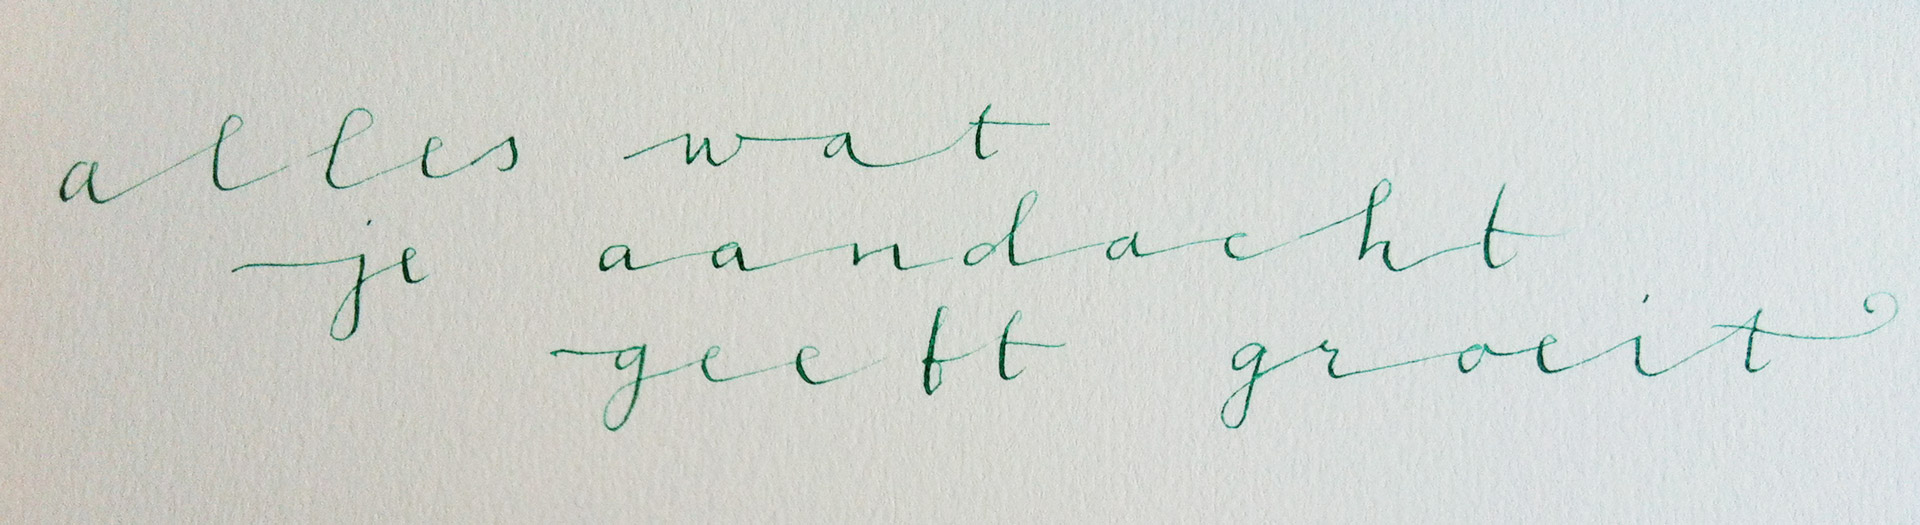 alles wat
je aandacht
geeft groeit